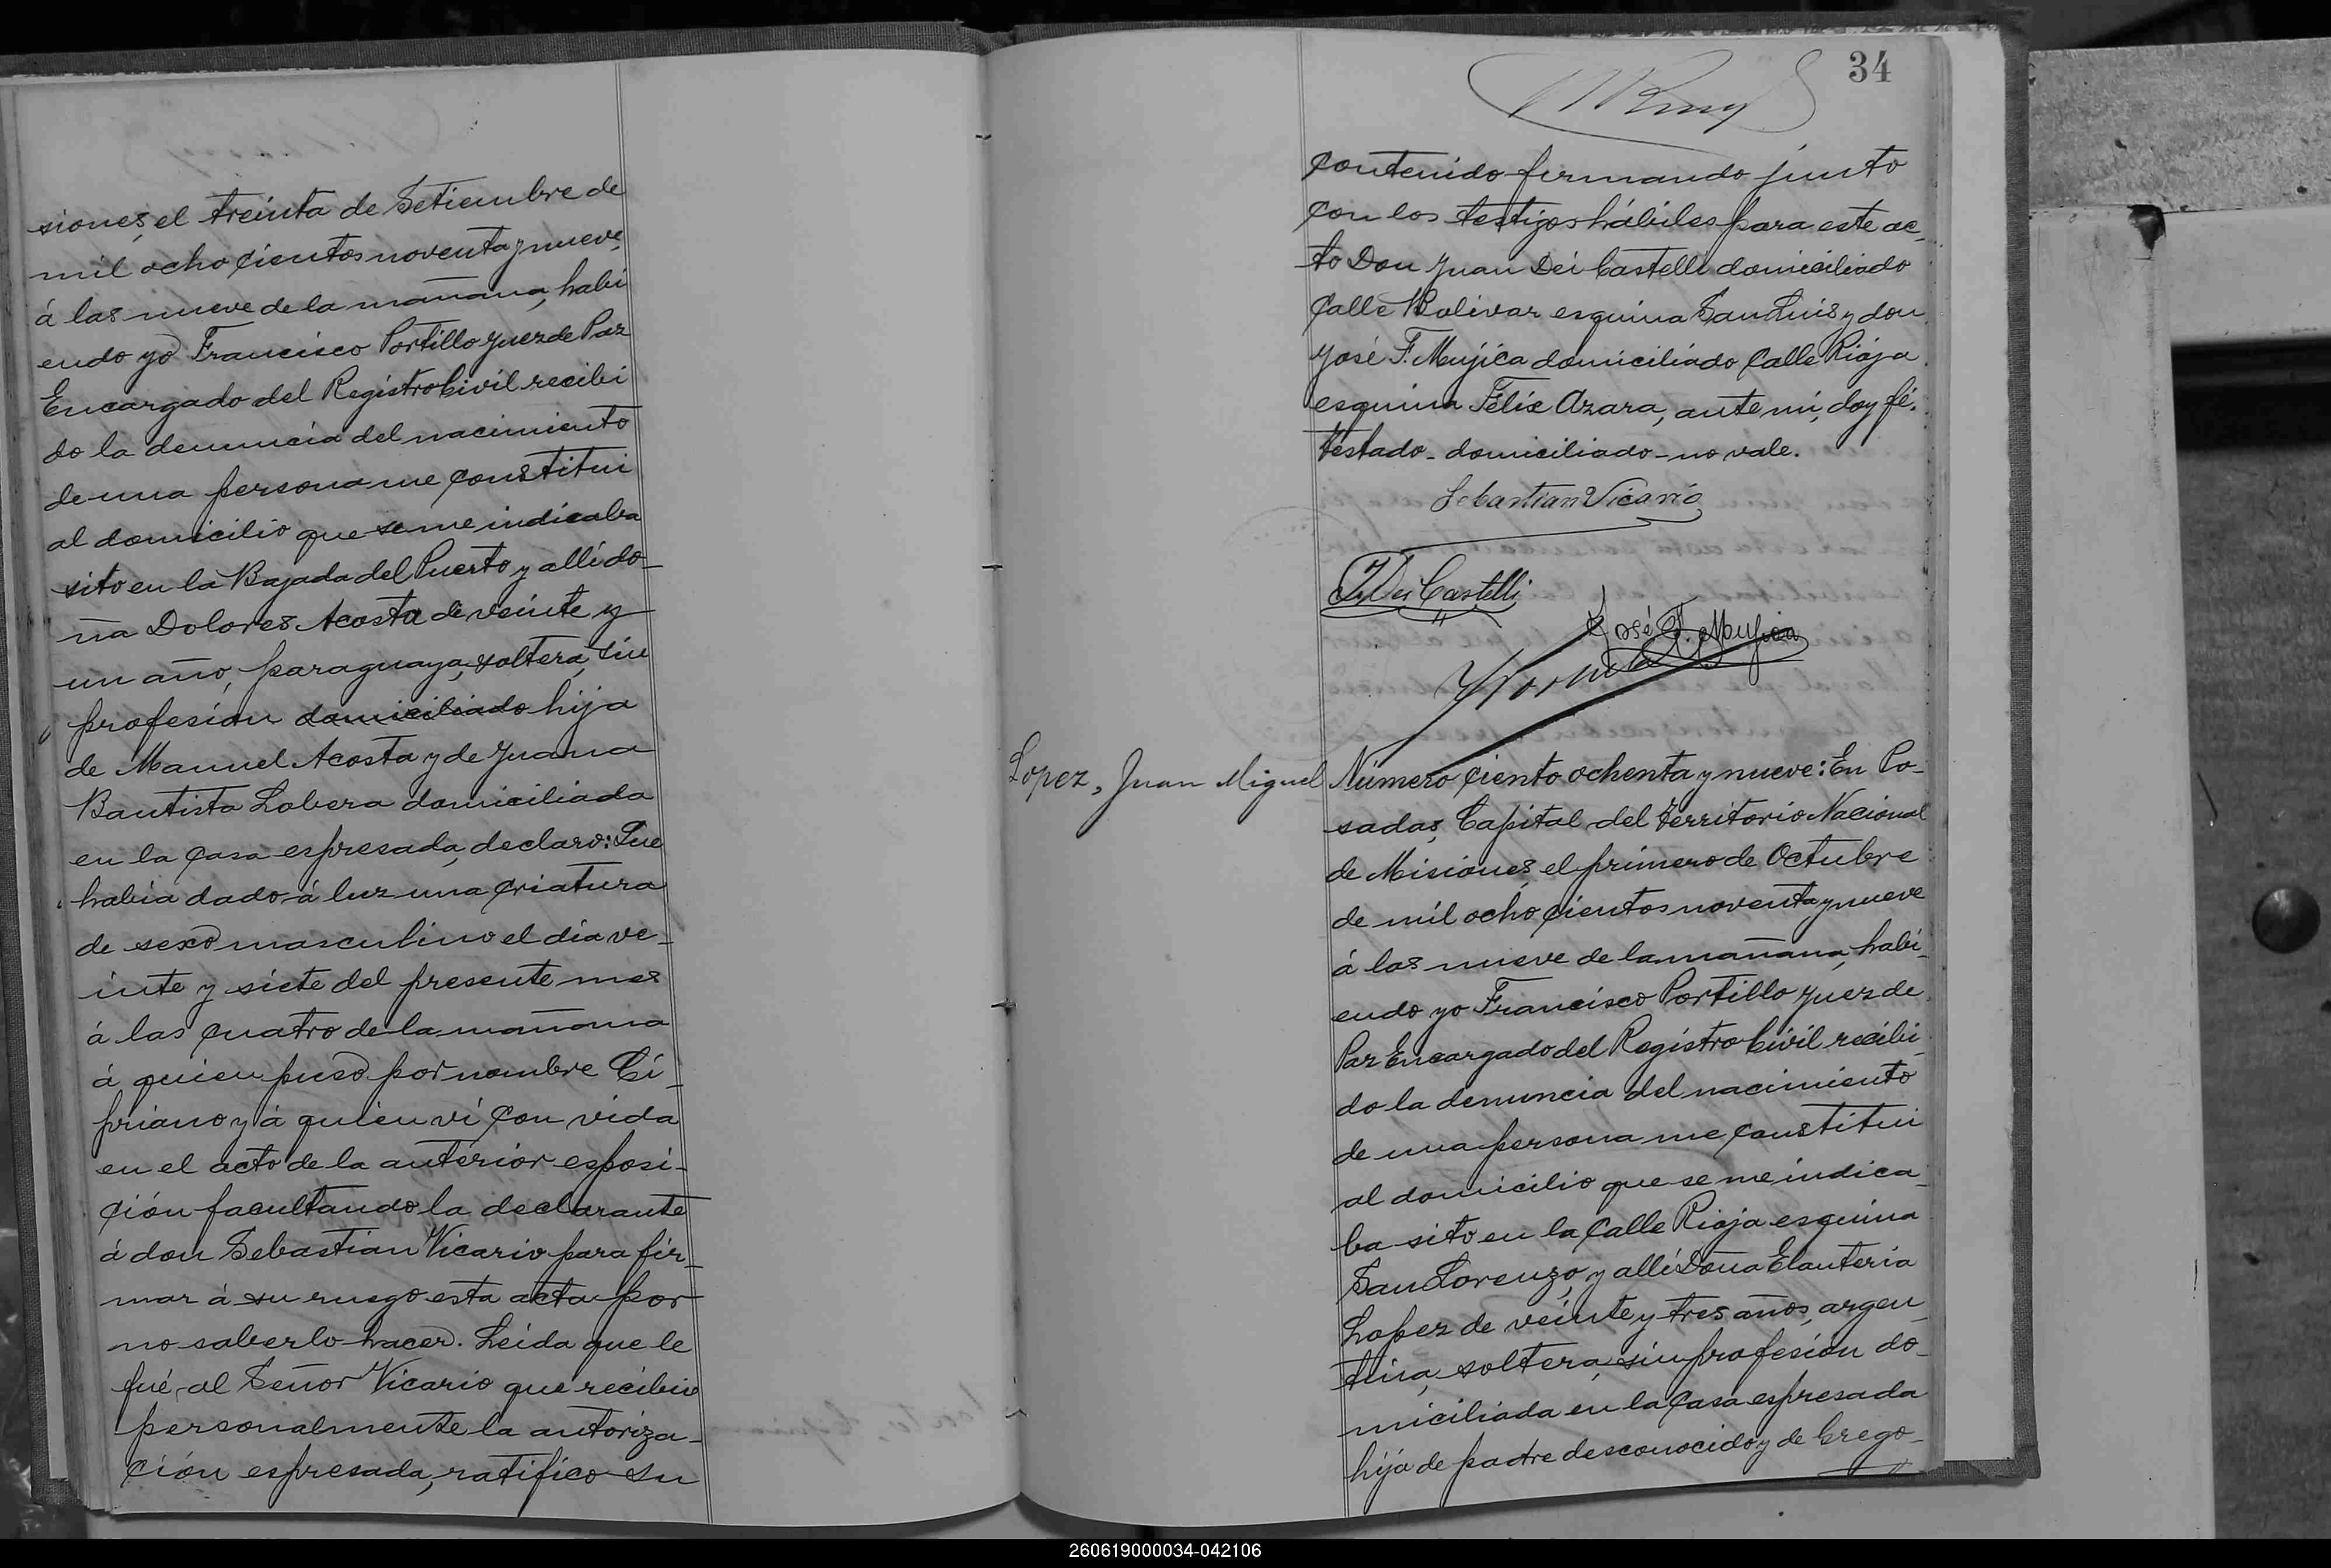 siones, el treinta de Setiembre de
mil ocho cientos noventa y nueve,
á las nueve de la mañana, habi
endo yo Francisco Portillo Juez de Paz
Encargado del Registro Civil recibi
do la denuncia del nacimiento
de una persona me constitui
al domicilio que se me indicaba
sito en la Bajada del Puerto y allí do-
ña Dolores Acosta de veinte y
un año, paraguaya, soltera, sin
profesion domiciliado hija
de Manuel Acosta y de Juana
Bautista Lobera domiciliada
en la casa espresada, declaro: Que
habia dado á luz una criatura
de sexo masculino el dia ve-
inte y siete del presente mes
á las cuatro de la mañana
á quien puso por nombre Ci-
priano y á quien ví con vida
en el acto de la anterior esposi-
ción facultando la declarante
á don Sebastian Vicario para fir-
mar á su ruego esta acta por
no saberlo hacer. Leida que le
fué al Señor Vicario que recibio
personalmente la autoriza-
ción espresada, ratifico su
34
contenido firmando junto
con los testigos hábiles para este ac-
to Don Juan Dei Castelli domiciliado
calle Bolivar esquina San Luis y don
José F. Mujica domiciliado calle Rioja
esquina Félix Azara, ante mí, doy fé.
testado - domiciliado - no vale.
Sebastian Vicario
J. Dei Castelli
José F. Mujica
Lopez, Juan Miguel
Número ciento ochenta y nueve: En Po-
sadas, Capital del territorio Nacional
de Misiones, el primero de Octubre
de mil ocho cientos noventa y nueve
á las nueve de la mañana, habi-
endo yo Francisco Portillo Juez de
Paz Encargado del Registro Civil recibi-
do la denuncia del nacimiento
de una persona me constitui
al domicilio que se me indica-
ba sito en la calle Rioja esquina
San Lorenzo, y allí Doña Elauteria
Lopez de veinte y tres años, argen-
tina, soltera, sin profesión do-
miciliada en la casa espresada
hija de padre desconocido y de Grego-
260619000034-042106